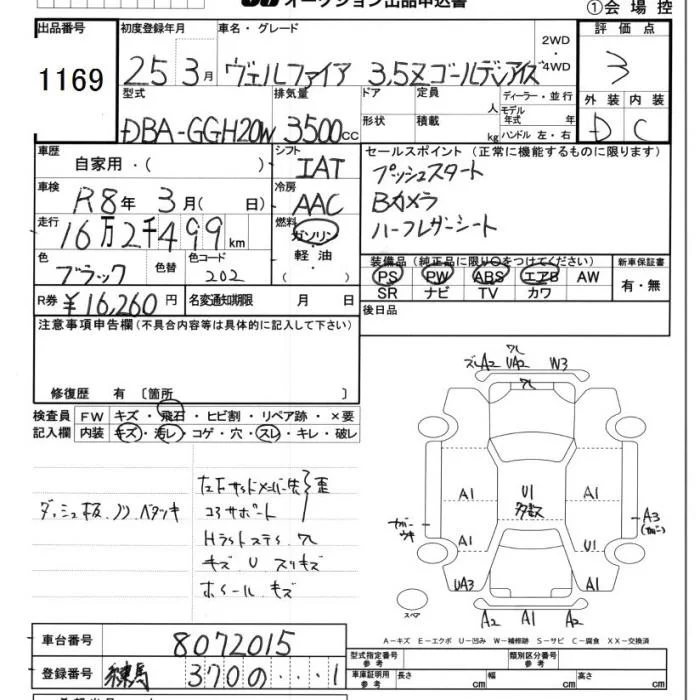 オークション出品申込書
①会場控
出品番号
1169
初度登録年月
25 3月
車名・グレード
ヴェルファイア 3.5Z ゴールデンアイズ
2WD・4WD
評価点
3
型式
DBA-GGH20W
排気量
3500cc
ドア
形状
定員 人
積載 kg
ディーラー・並行
モデル年式 年
ハンドル 左・右
外装 内装
D C
車歴
自家用・( )
シフト
IAT
車検
R8年 3月( 日)
冷房
AAC
走行
16万2千499km
燃料
ガソリン
軽油
( )
色
ブラック
色替
色コード
202
R券 ¥16,260円
名変通知期限 月 日
セールスポイント(正常に機能するものに限ります)
プッシュスタート
Bカメラ
ハーフレザーシート
装備品(純正品に限り○をつけてください)
PS PW ABS エアB AW
SR ナビ TV カワ
新車保証書
有・無
後日品
注意事項申告欄(不具合内容等は具体的に記入して下さい)
修復歴 有〔箇所 〕
検査員記入欄
FW キズ・飛石・ヒビ割・リペア跡・×要
内装 キズ・汚レ・コゲ・穴・スレ・キレ・破レ
ダッシュ板、ノリ ベタツキ
左右サイドメンバー先 歪
コアサポート
Hライト ステー ワレ
キズ U スリキズ
ホイール キズ
ズレA2 ワレ UA2 W3
ワレ
A1 U1 多数 A1
A3
A1 U1
UA3 A1
A2 A1 A2
スペア
A-キズ E-エクボ U-凹み W-補修跡 S-サビ C-腐食 XX-交換済
車台番号
8072015
登録番号
練馬 370の・・・1
型式指定番号 参考
類別区分番号 参考
車庫証明用 参考
長さ cm 幅 cm 高さ cm